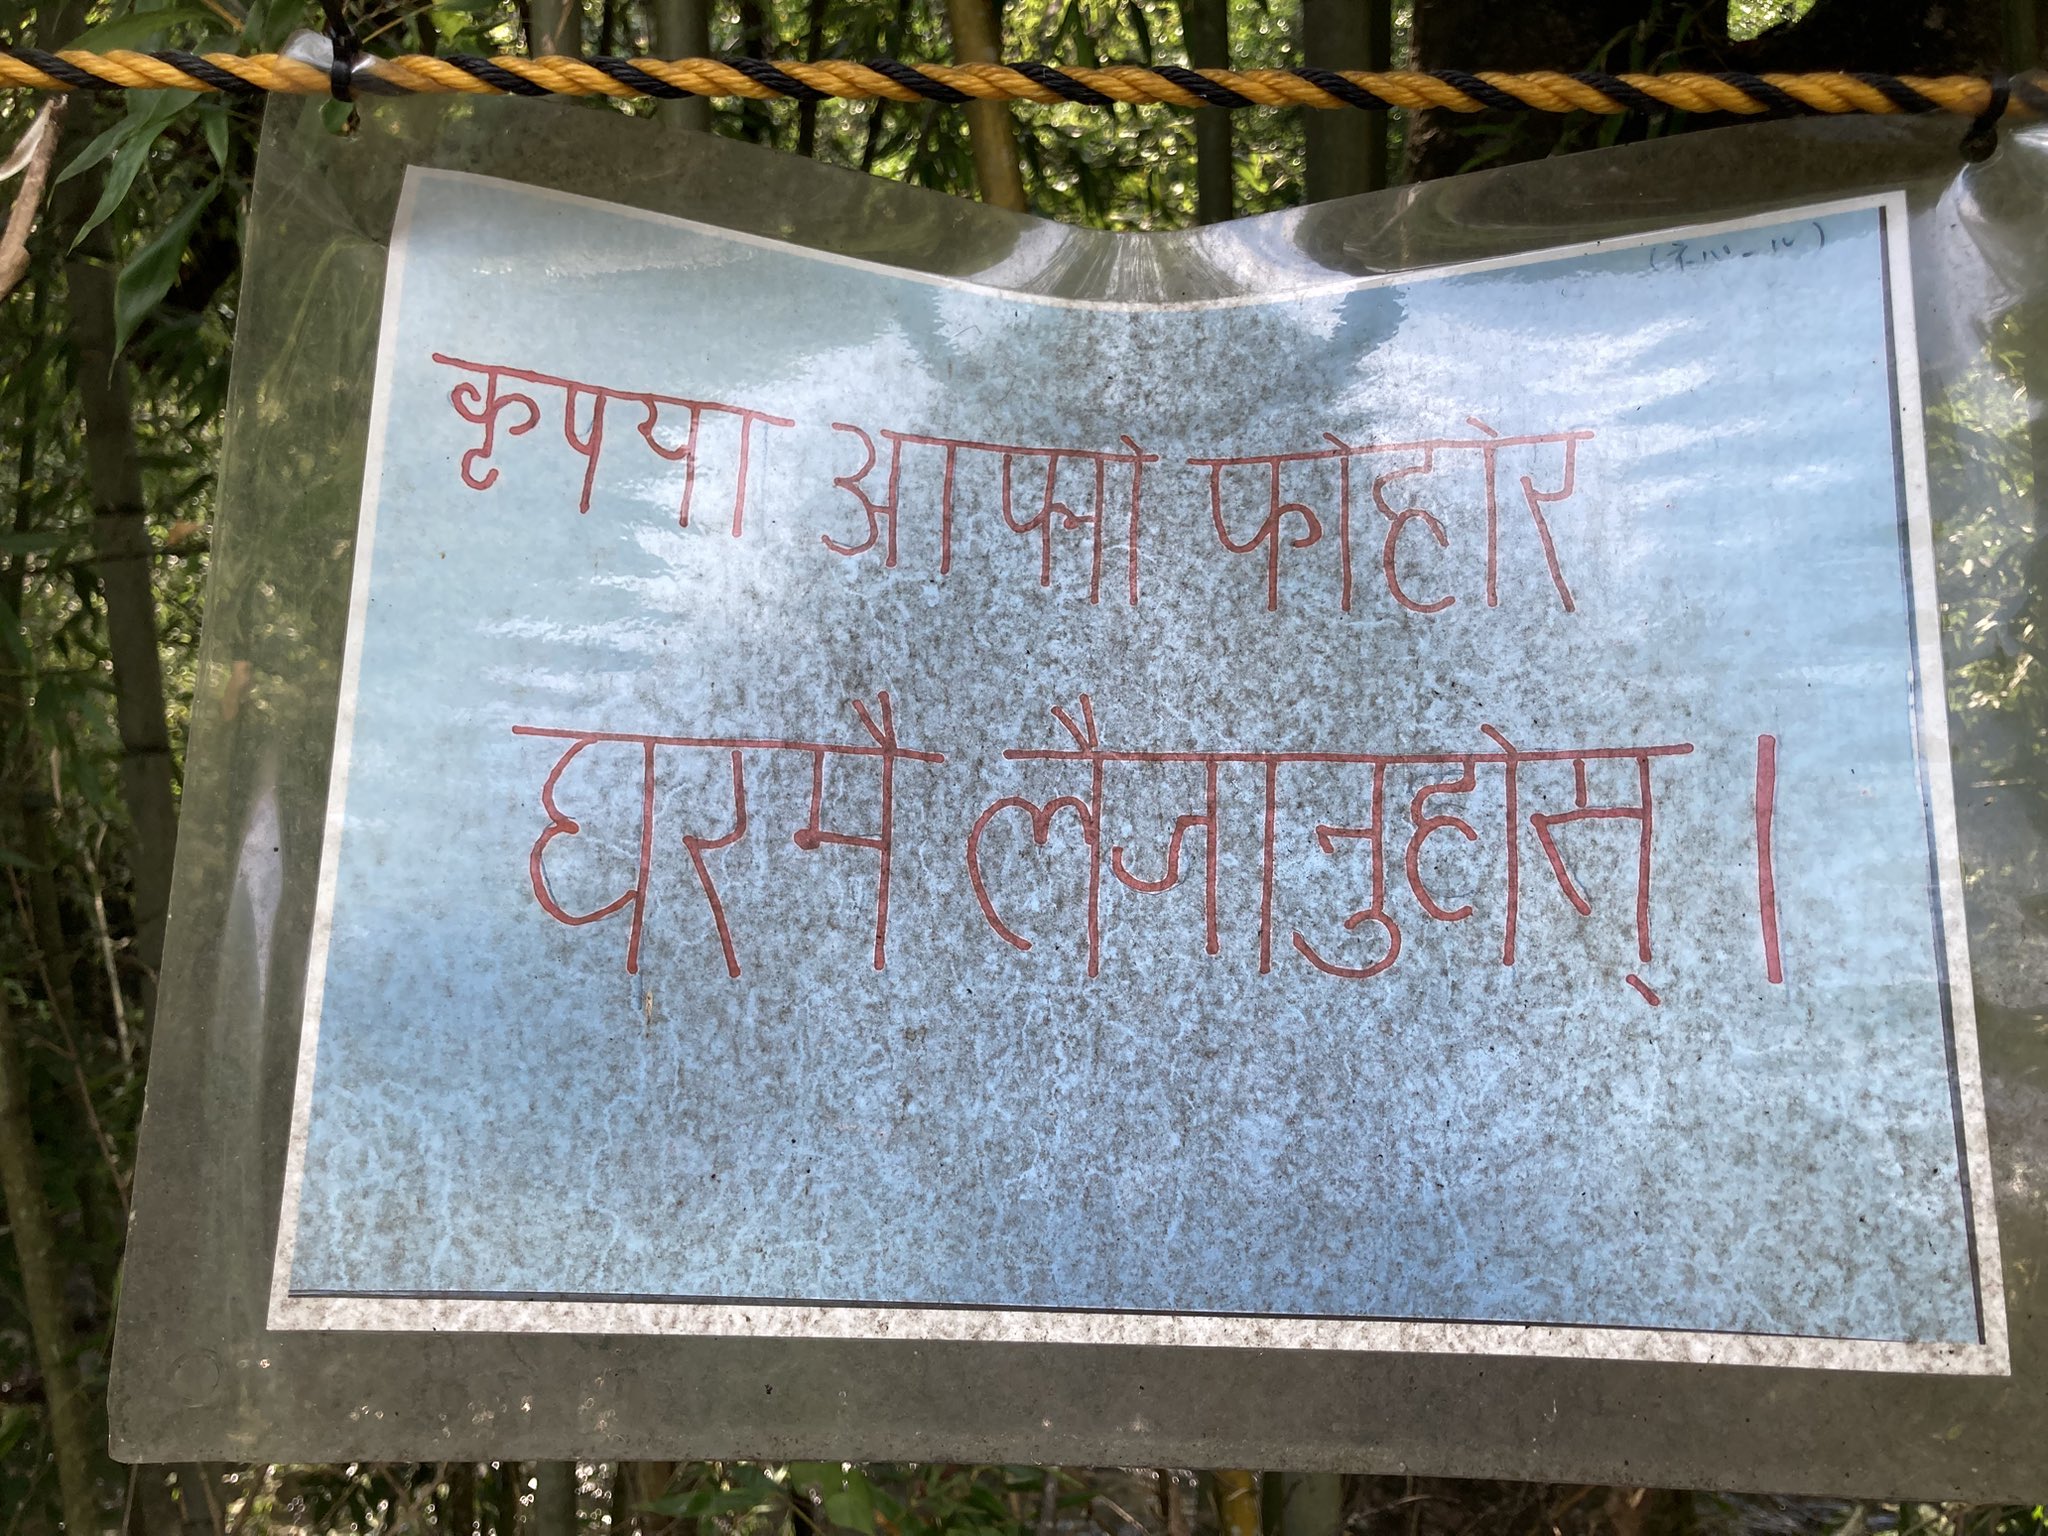 (ネパール)
कृपया आफ्नो फोहोर
घरमै लैजानुहोस् ।